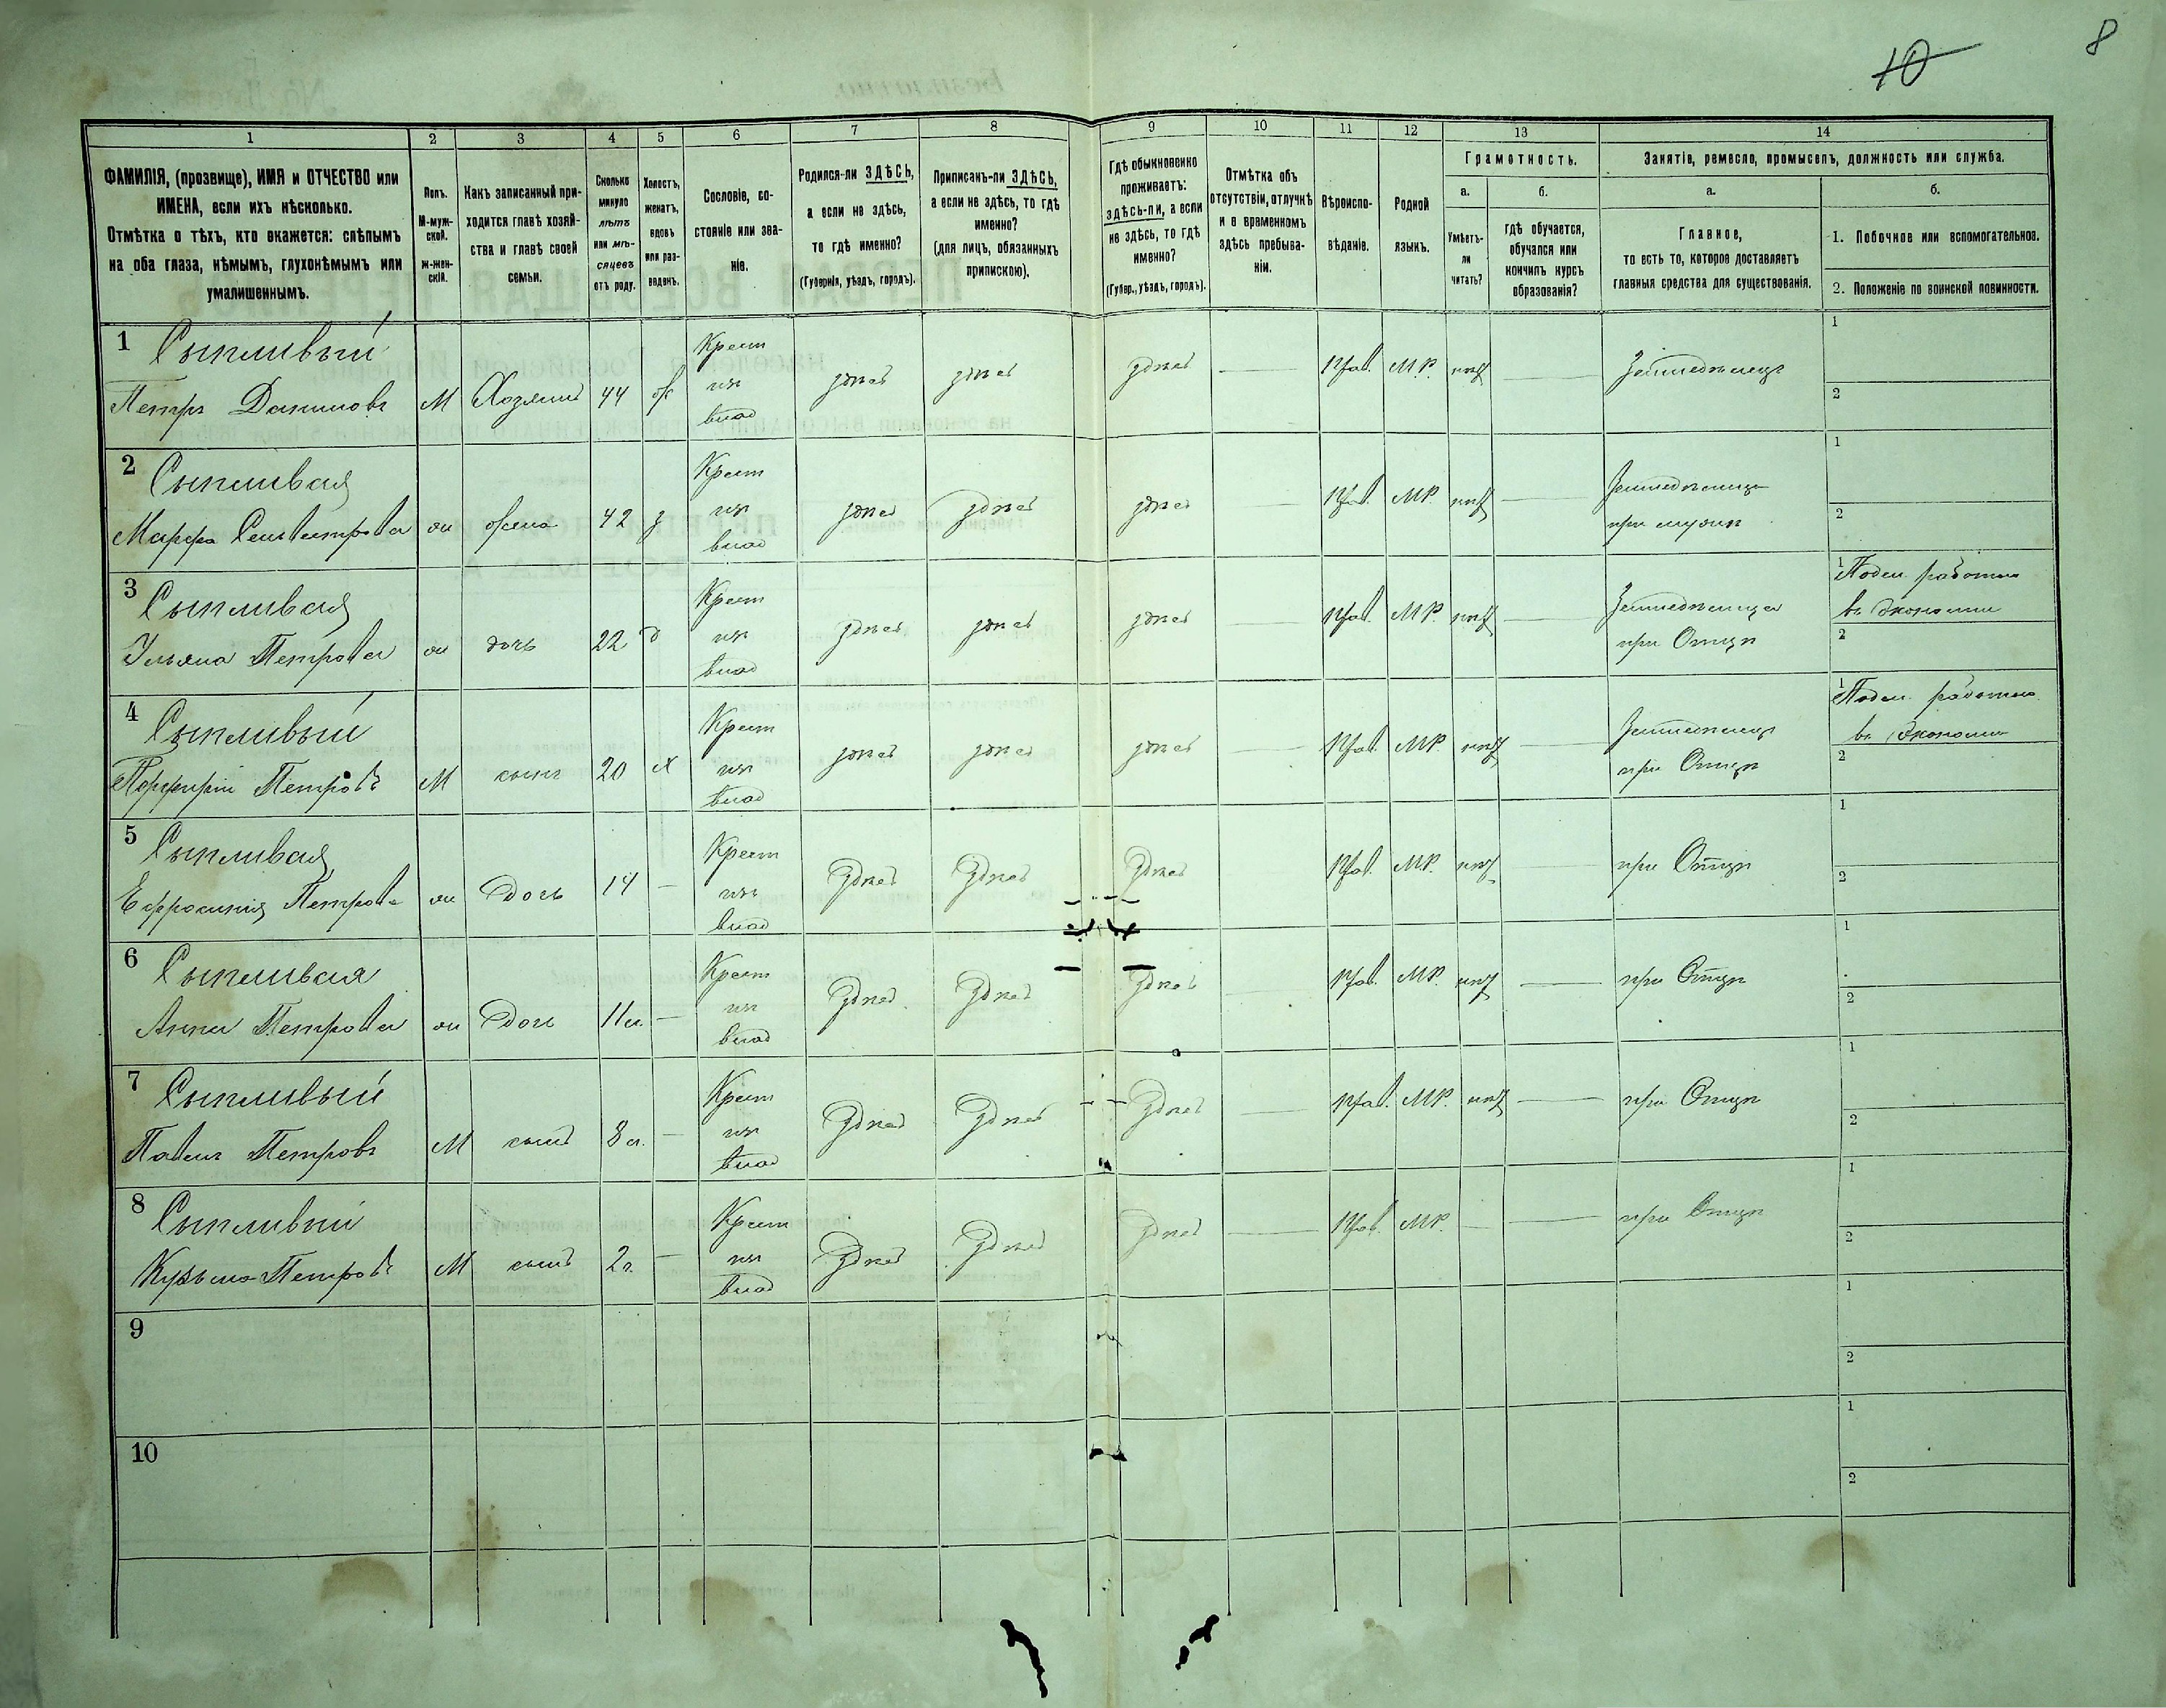 10
8
1
2
3
4
5
6
7
8
9
10
11
12
13
14
ФАМИЛІЯ, (прозвище), ИМЯ и ОТЧЕСТВО или
ИМЕНА, если ихъ нѣсколько.
Отмѣтка о тѣхъ, кто окажется: слѣпымъ
на оба глаза, нѣмымъ, глухонѣмымъ или
умалишеннымъ.
Полъ.
М-муж-
ской.
ж-жен-
скій.
Какъ записанный при-
ходится главѣ хозяй-
ства и главѣ своей
семьи.
Сколько
минуло
лѣтъ
или мѣ-
сяцевъ
отъ роду.
Холостъ,
женатъ,
вдовъ
или раз-
веденъ.
Сословіе, со-
стояніе или зва-
ніе.
Родился-ли ЗДѢСЬ,
а если не здѣсь,
то гдѣ именно?
(Губернія, уѣздъ, городъ).
Приписанъ-ли ЗДѢСЬ,
а если не здѣсь, то гдѣ
именно?
(для лицъ, обязанныхъ
припискою).
Гдѣ обыкновенно
проживаетъ:
здѣсь-ли, а если
не здѣсь, то гдѣ
именно?
(Губер., уѣздъ, городъ).
Отмѣтка объ
отсутствіи, отлучкѣ
и о временномъ
здѣсь пребыва-
ніи.
Вѣроиспо-
вѣданіе.
Родной
языкъ.
Грамотность.
а.
Умѣетъ-
ли
читать?
б.
гдѣ обучается,
обучался или
кончилъ курсъ
образованія?
Занятіе, ремесло, промыселъ, должность или служба.
а.
Главное,
то есть то, которое доставляетъ
главныя средства для существованія.
б.
1. Побочное или вспомогательное.
2. Положеніе по воинской повинности.
1 Сыпливый
Петръ Даниловъ М Хозяинъ 44 ж Крест из влад здѣсь здѣсь здѣсь — Прав. М.Р. нѣт — Земледѣлецъ
1
2
2 Сыпливая
Марфа Сельвестрова ж жена 42 з Крест из влад здѣсь здѣсь здѣсь — Прав. М.Р. нѣт — Земледѣлица
при мужѣ
1
2
3 Сыпливая
Ульяна Петрова ж дочь 22 д Крест из влад здѣсь здѣсь здѣсь — Прав. М.Р. нѣт — Земледѣлица
при Отцѣ
1 Поден. работы
въ Экономіи
2
4 Сыпливый
Порфирій Петровъ М сынъ 20 х Крест из влад здѣсь здѣсь здѣсь — Прав. М.Р. нѣт — Земледѣлецъ
при Отцѣ
1 Поден. работы
въ Экономіи
2
5 Сыпливая
Ефросинія Петрова ж Дочь 14 — Крест из влад Здѣсь Здѣсь Здѣсь Прав. М.Р. нѣт — при Отцѣ
1
2
6 Сыпливая
Анна Петрова ж Дочь 11 л. — Крест из влад Здѣсь Здѣсь Здѣсь — Прав. М.Р. нѣт — при Отцѣ
1
2
7 Сыпливый
Павелъ Петровъ М сынъ 8 л. — Крест из влад Здѣсь Здѣсь Здѣсь — Прав. М.Р. нѣт — при Отцѣ
1
2
8 Сыпливый
Кузьма Петровъ М сынъ 2 г. — Крест из влад Здѣсь Здѣсь Здѣсь — Прав. М.Р. — — при Отцѣ
1
2
9
1
2
10
1
2